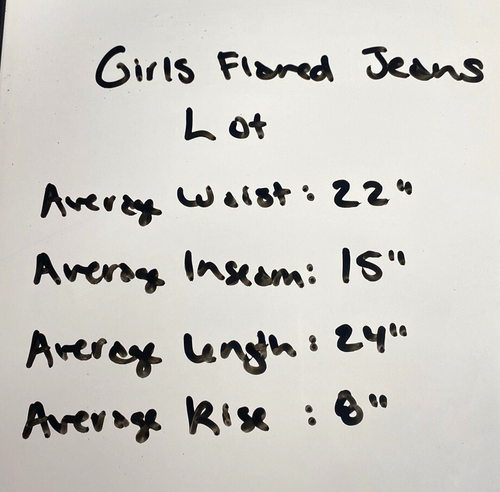 Girls Flared Jeans
Lot
Average Waist: 22"
Average Inseam: 15"
Average Length: 24"
Average Rise : 8"